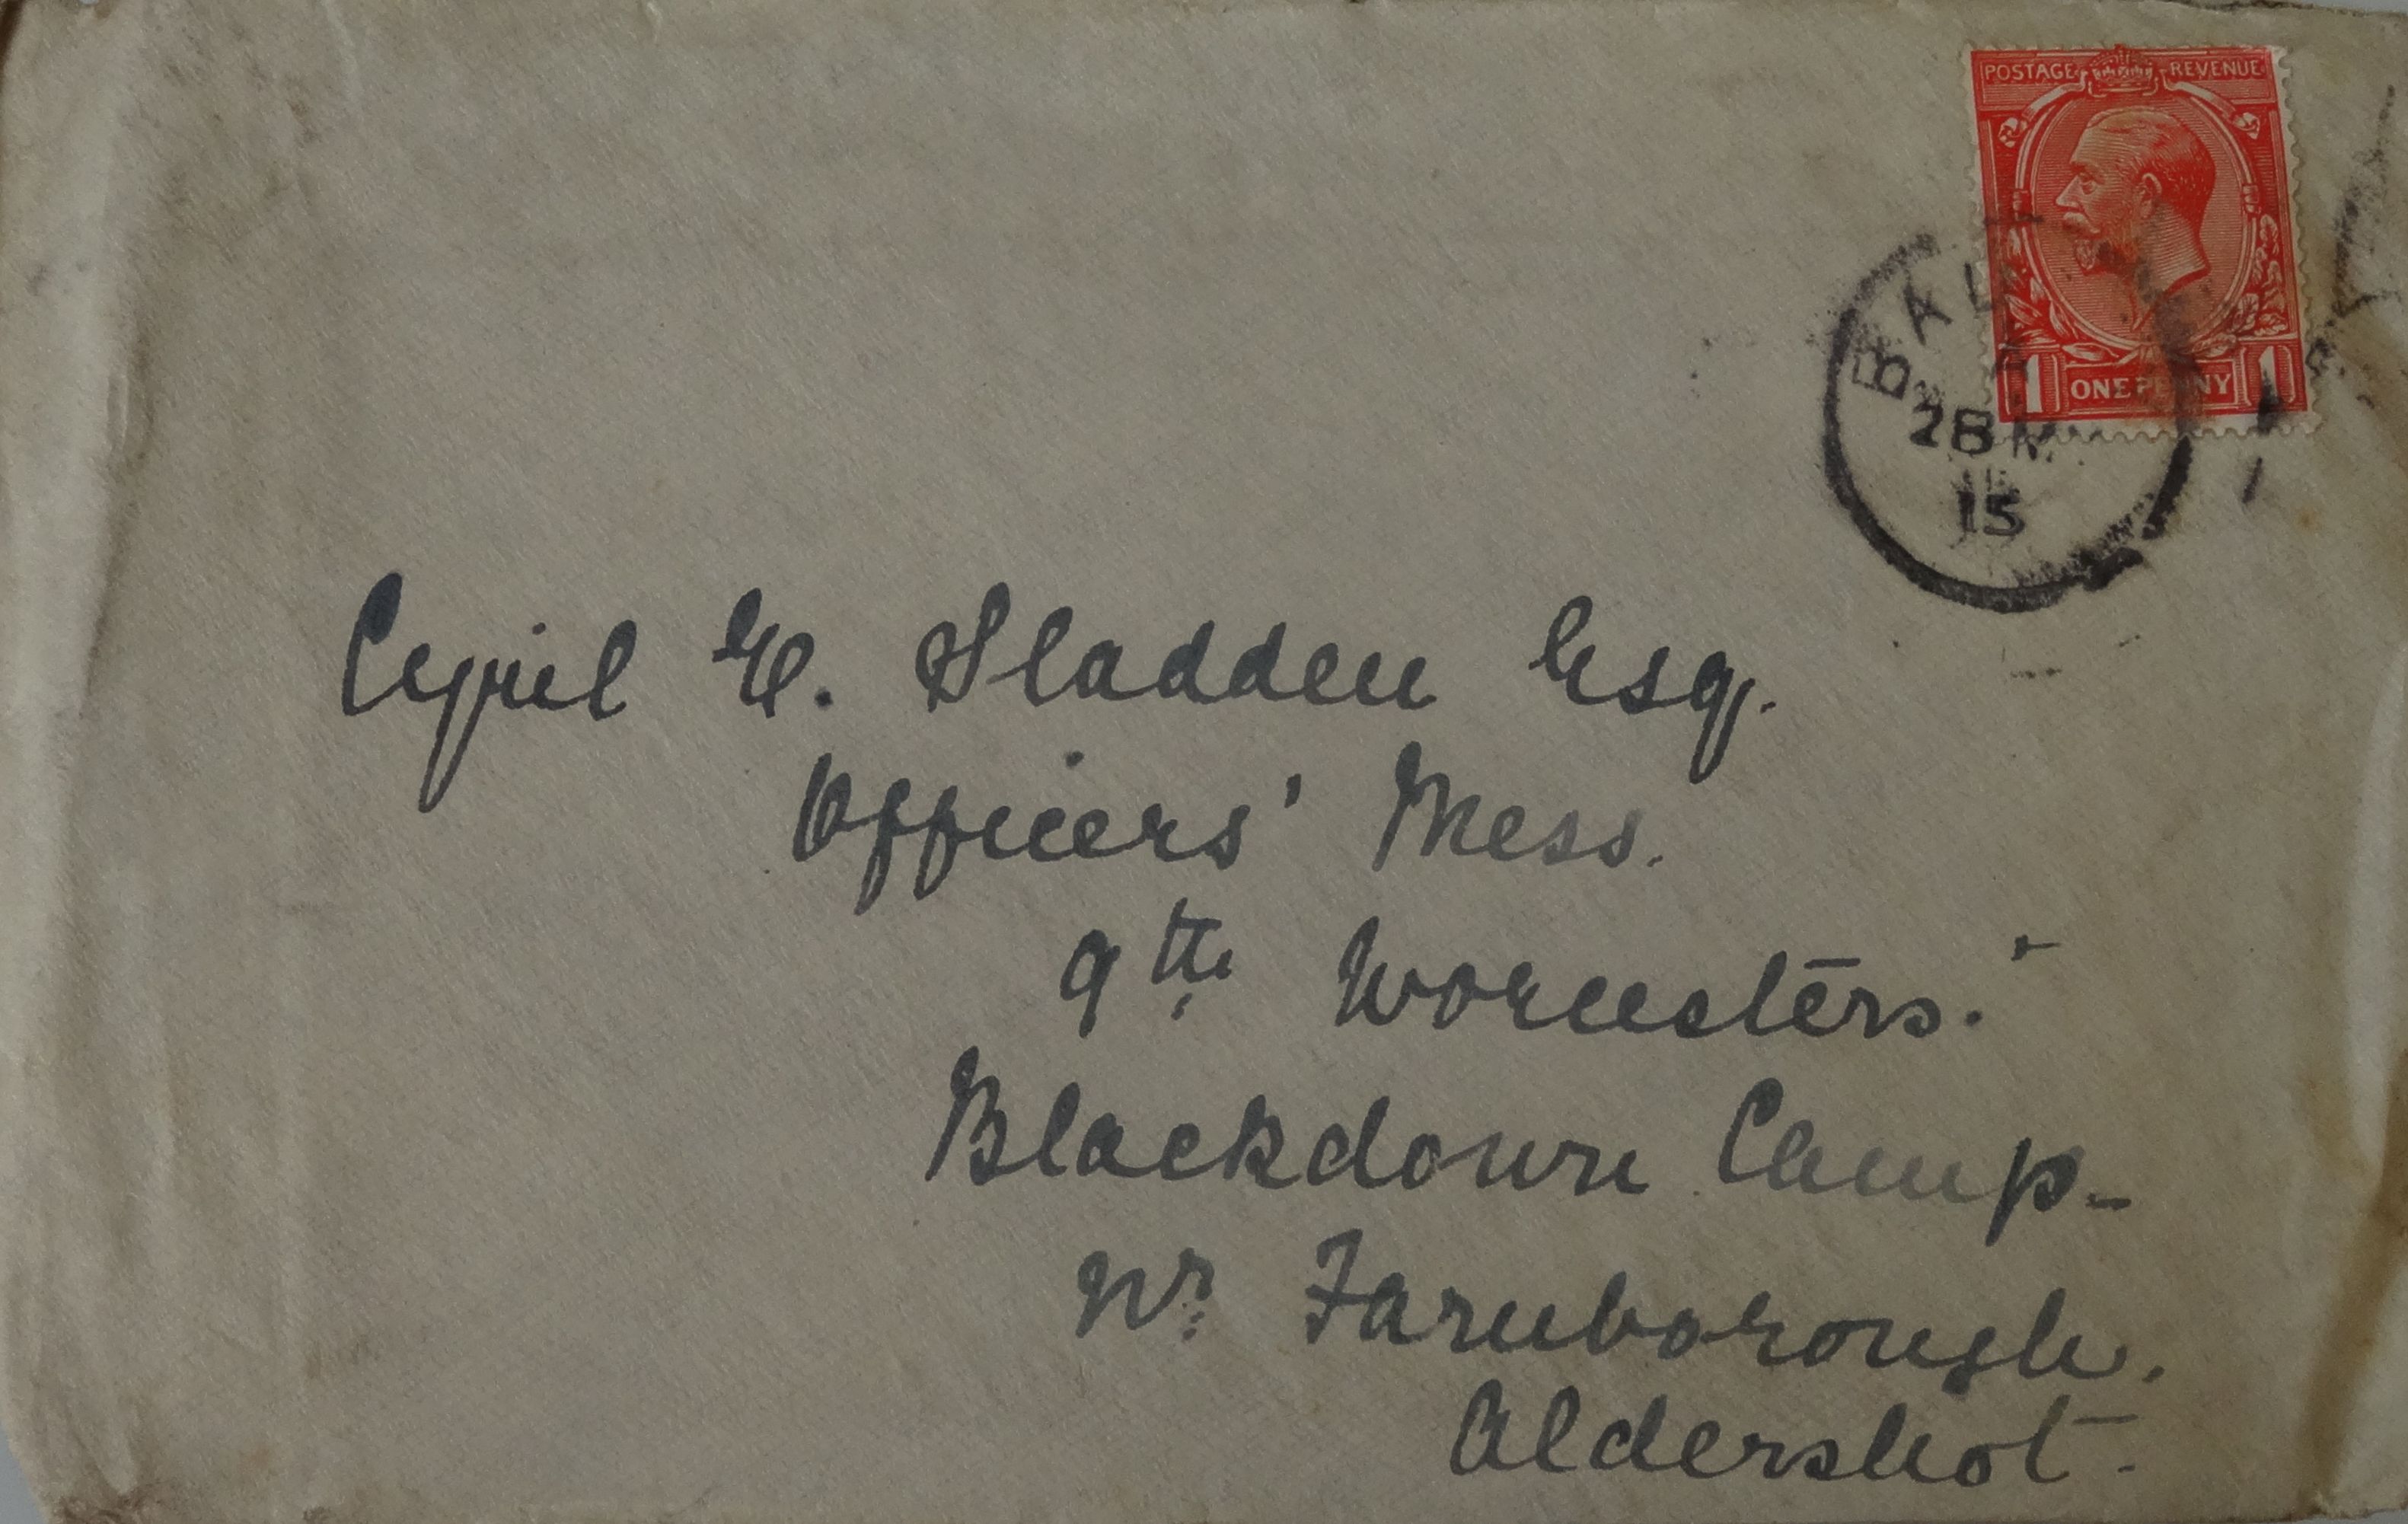 POSTAGE REVENUE
1 ONE PENNY 1
28 M
15
Cyril E. Sladden Esq.
Officers' Mess.
9th Worcesters.
Blackdown Camp-
Nr Farnborough.
Aldershot.